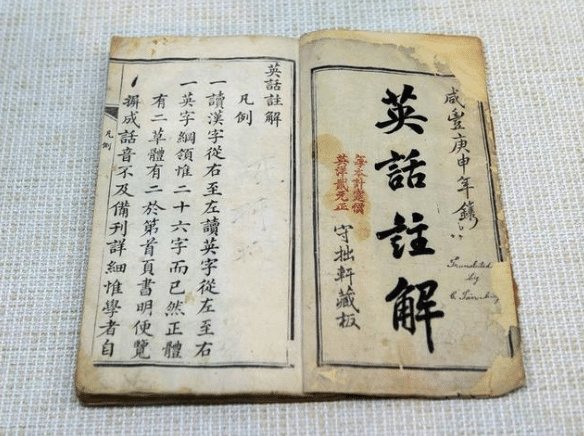 咸豐庚申年鐫
Translated
by
英話註解
每本計寔價
英洋貳元正
守拙軒藏板
英話註解
凡例
一讀漢字從右至左讀英字從左至右
一英字綱領惟二十六字而已然正體
有二草體有二於第首頁書明便覽
摒成話音不及備刊詳細惟學者自
凡例